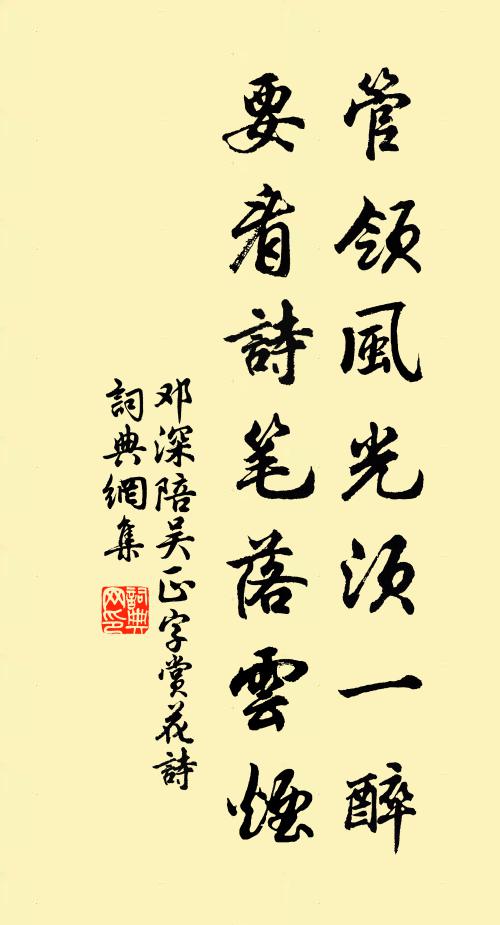 管領風光須一醉
要看詩笔落雲煙
邓深陪吴正字賞花詩
詞典網集
詞典网印